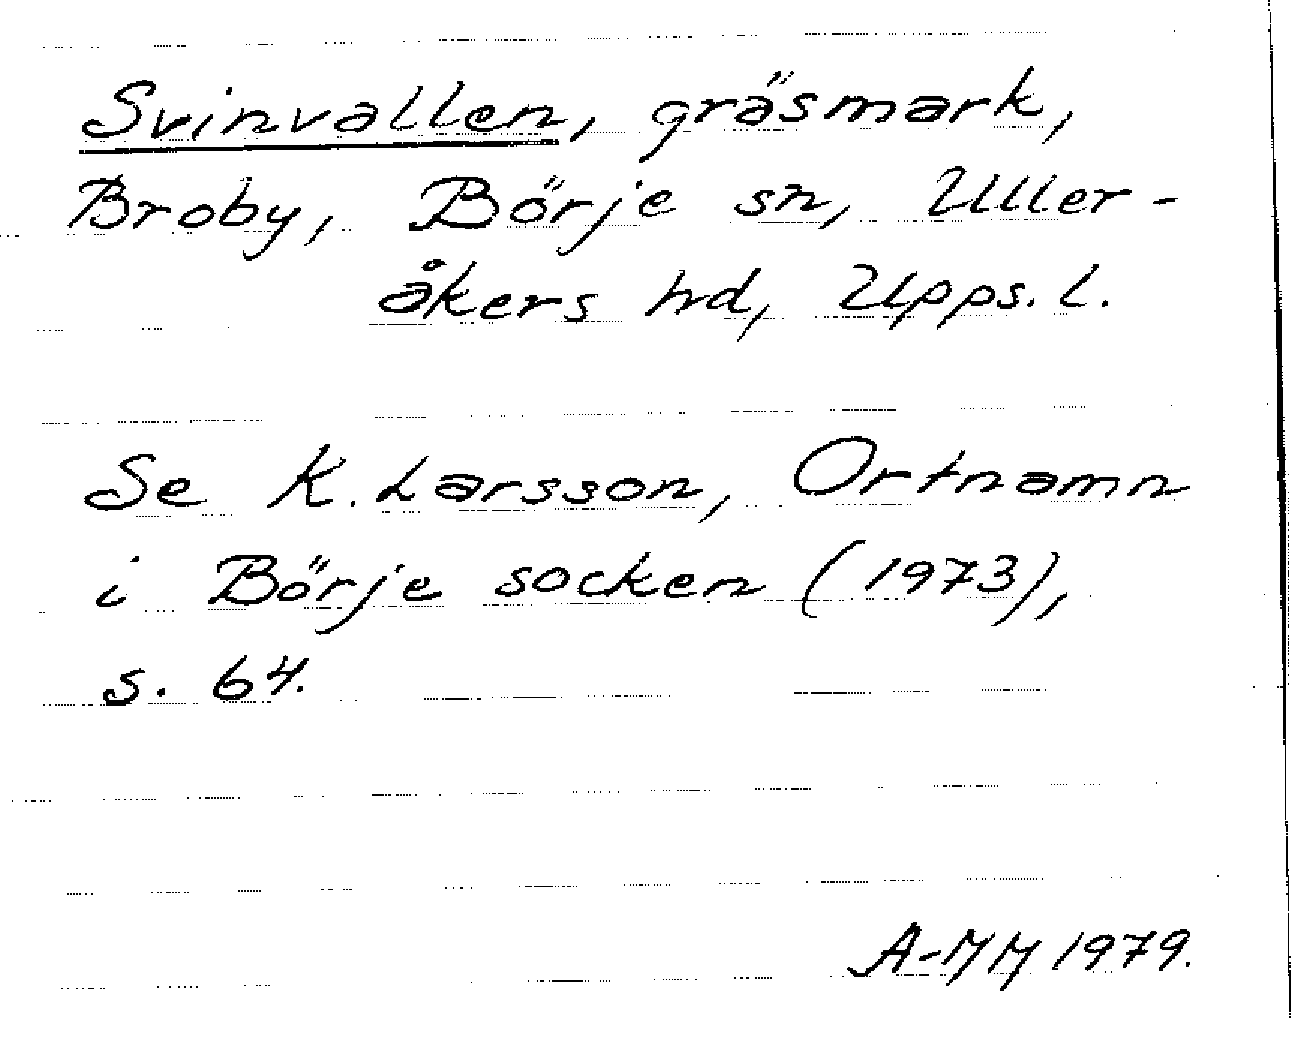 Svinvallen, gräsmark,
Broby, Börje sn, Uller-
åkers hd, Upps. l.
Se K. Larsson, Ortnamn
i Börje socken (1973),
s. 64.
A-MM 1979.